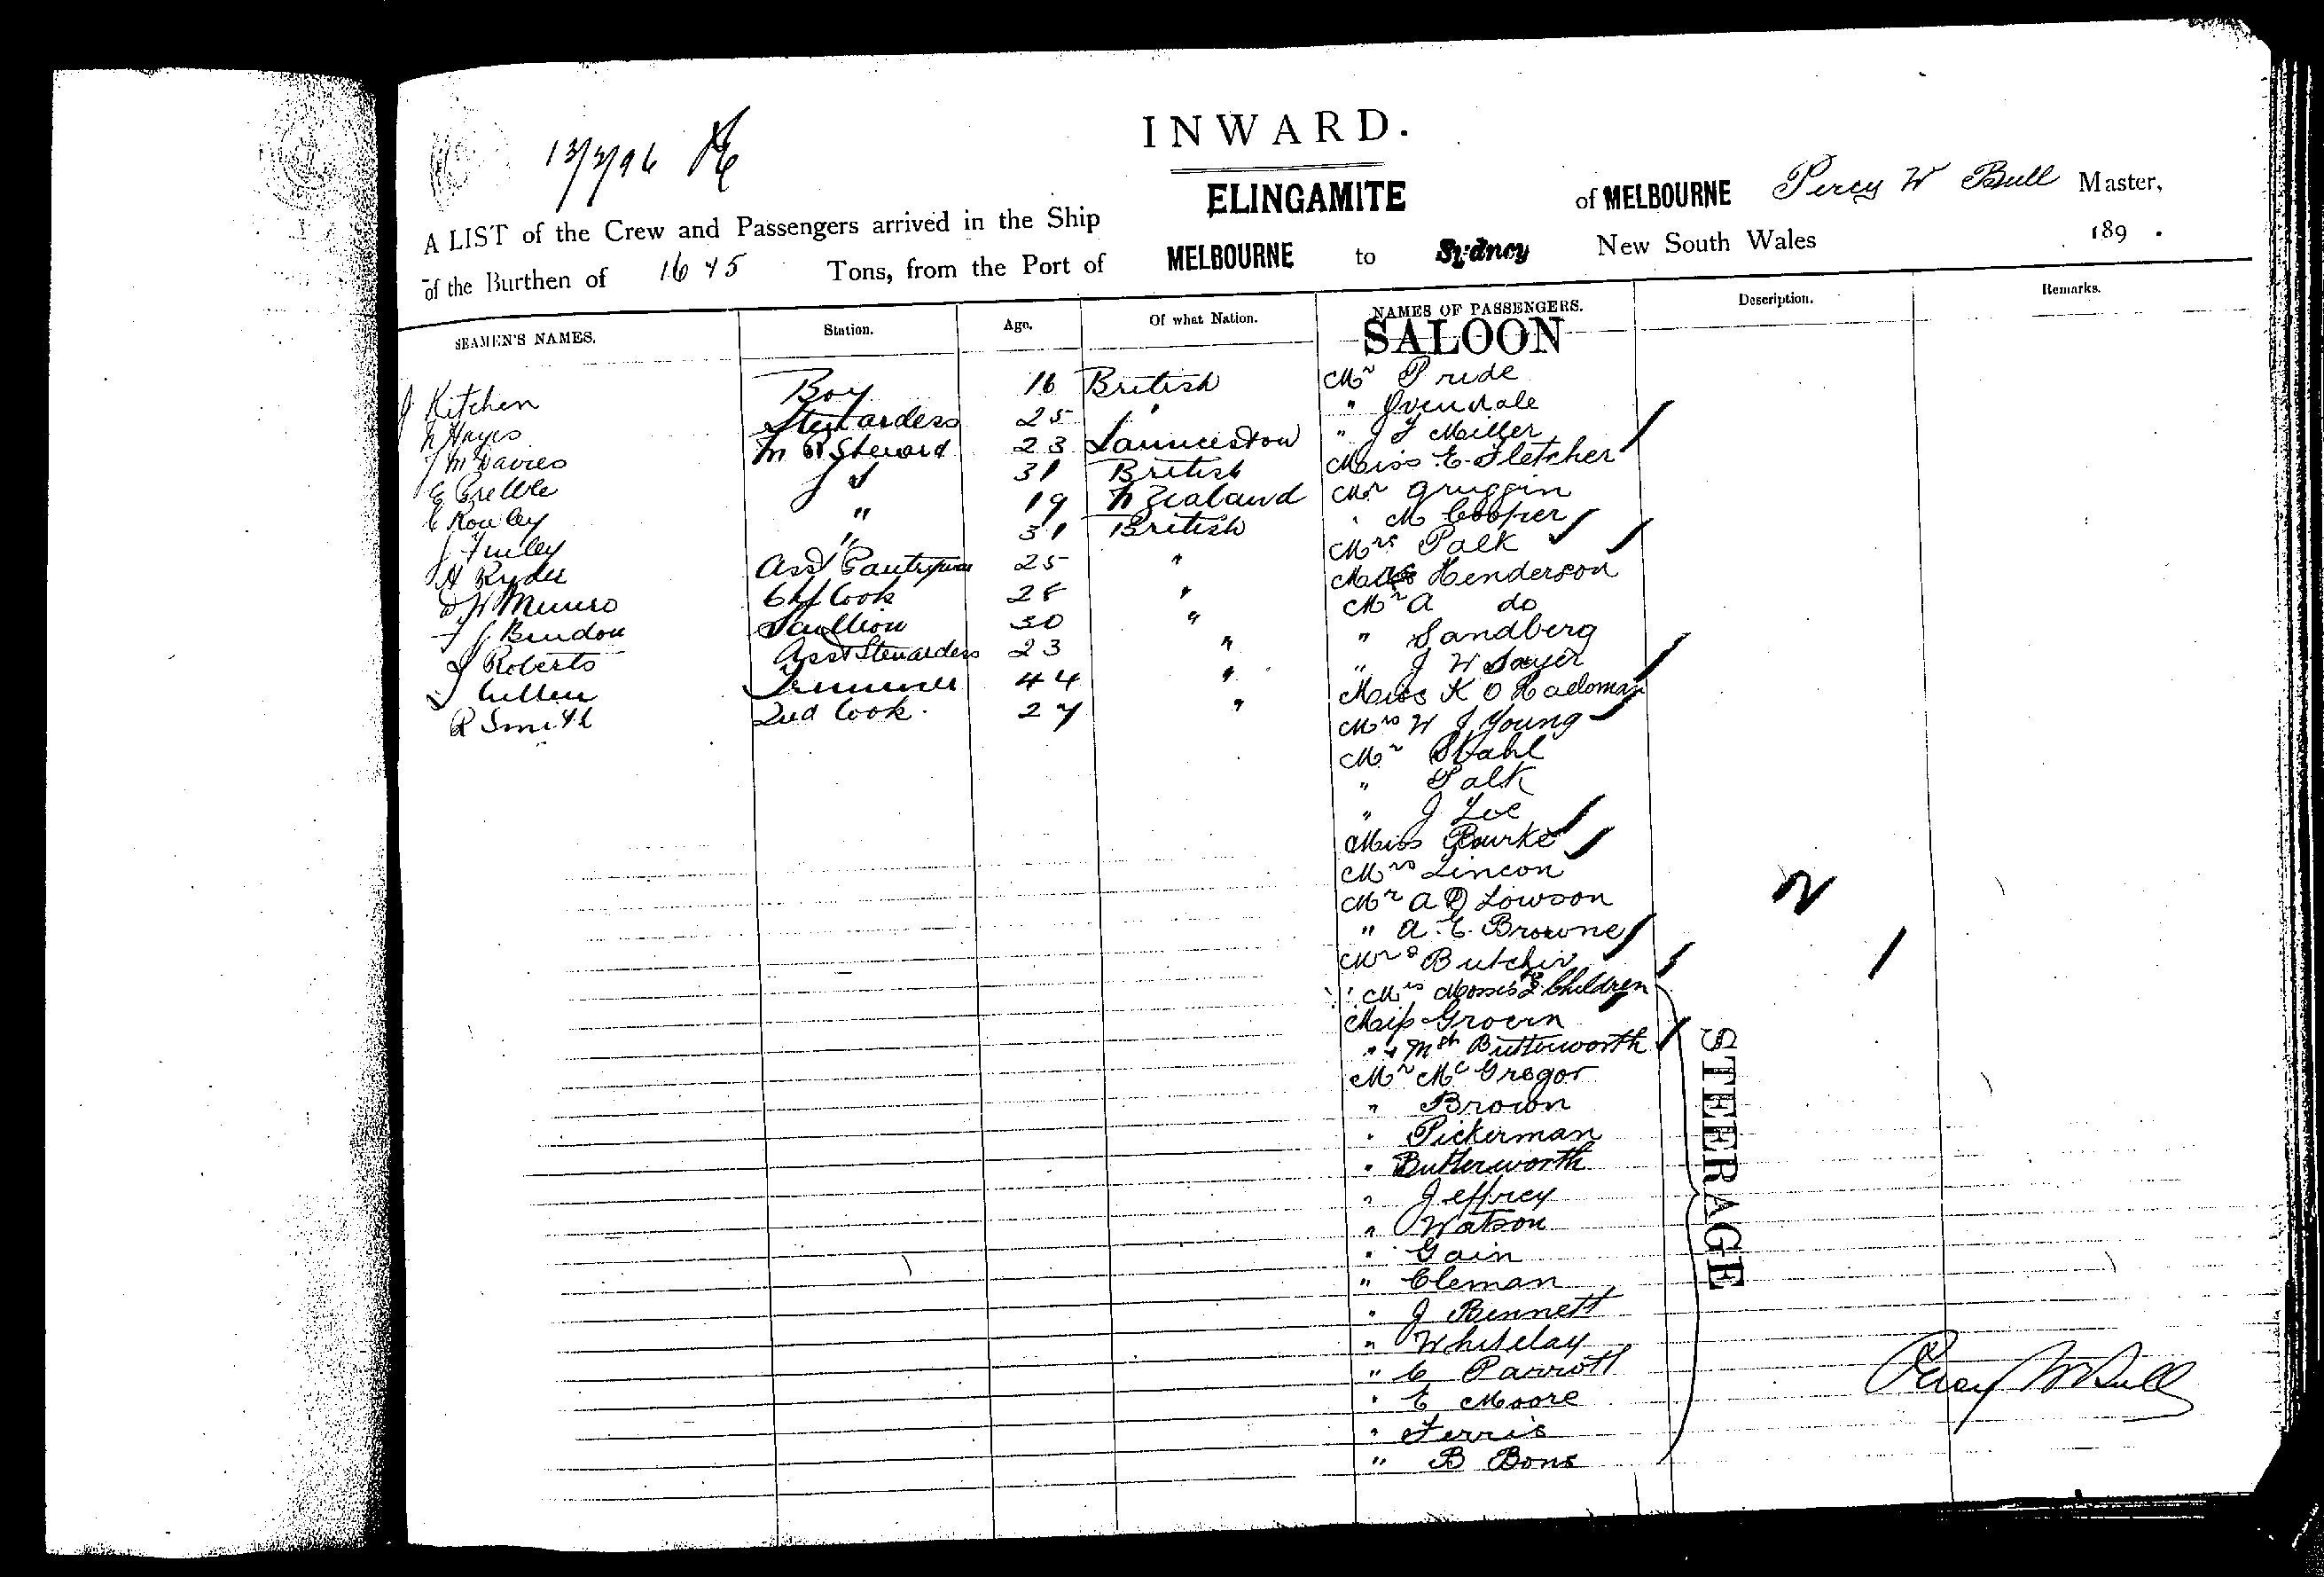 INWARD.
13/3/96
ELINGAMITE of MELBOURNE Percy W Bull Master,
A LIST of the Crew and Passengers arrived in the Ship
of the Burthen of 1675 Tons, from the Port of MELBOURNE to Sydney New South Wales 189 .
SEAMEN'S NAMES. Station. Age. Of what Nation. NAMES OF PASSENGERS. Description. Remarks.
SALOON
J Kitchen Boy 16 British Mr Pride
N Hayes Stewardess 25 " " Ivendale
J M Davies M R Steward 23 Launceston " J F Miller
E 31 British Miss E. Fletcher
C Rowley " 19 N Zealand Mr Gruggin
J Finley " 31 British " M Cooper
H Ryder Asst Pantryman 25 " Mrs Palk
D W Munro Chf Cook 28 " Henderson
J Bendon Scullion 30 " Mr A do
J Roberts Asst Stewardess 23 " " Sandberg
J Cullen Trimmer 44 " " J W Sayer
R Smith 2nd Cook. 27 " Miss K O
Mrs W J Young
Mr Stahl
" Palk
" J Lee
Miss Bourke
Mrs Lincon
Mr A D Lowson
" A. E. Browne
Mrs Butcher
Mrs Mosses & 2 Children
Miss Groern
" & Mst Butterworth
Mr McGregor
" Brown
" Pickerman
" Butterworth
" Jeffrey
" Watson
" Gain
" Cleman
" J Bennett
" Whitelay
" C Parrott
" E Moore
" Ferris
" B Bons
STEERAGE
Percy W Bull